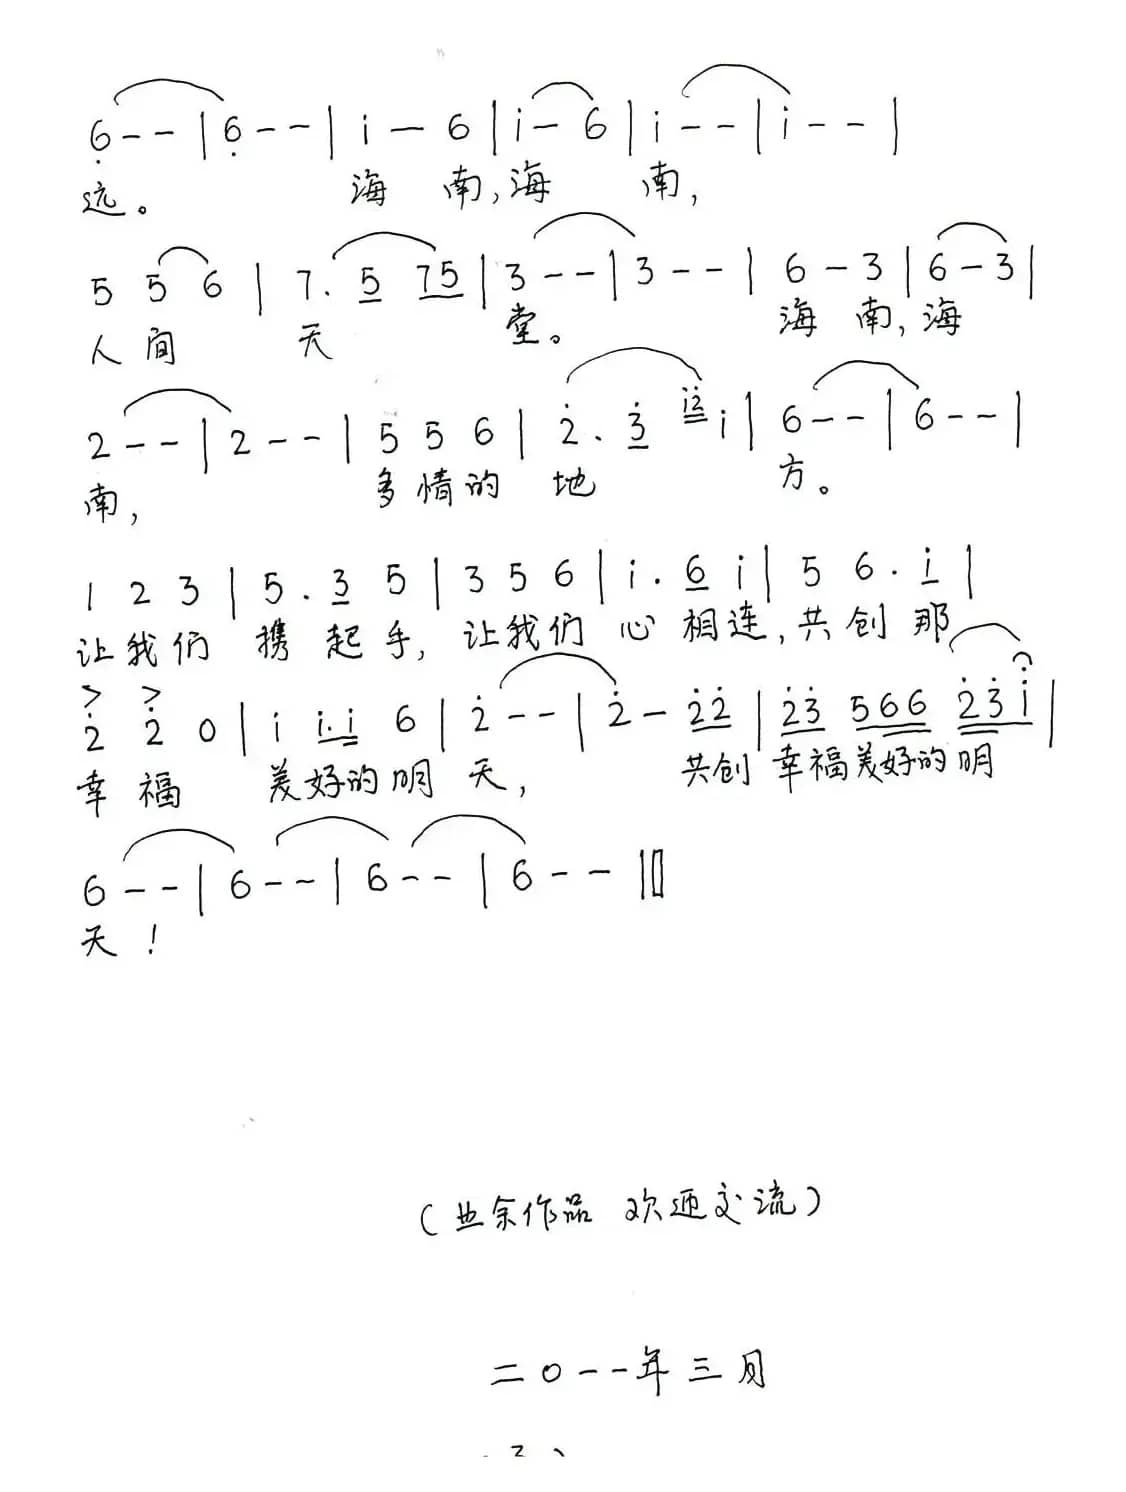 6 - - | 6 - - | i — 6 | i — 6 | i - - | i - - |
远。 海 南,海 南,
5 5 6 | 7. 5 75 | 3 - - | 3 - - | 6 - 3 | 6 - 3 |
人 间 天 堂。 海 南,海
2 - - | 2 - - | 5 5 6 | 2. 3 i2 i | 6 - - | 6 - - |
南, 多 情 的 地 方。
1 2 3 | 5. 3 5 | 3 5 6 | i. 6 i | 5 6. i |
让 我 们 携 起 手, 让 我 们 心 相 连,共 创 那
> >
2 2 0 | i i.i 6 | 2 - - | 2 - 22 | 23 566 23i |
幸 福 美好的明 天, 共创 幸福美好的明
6 - - | 6 - - | 6 - - | 6 - - ‖
天!
(业余作品 欢迎交流)
二〇一一年三月